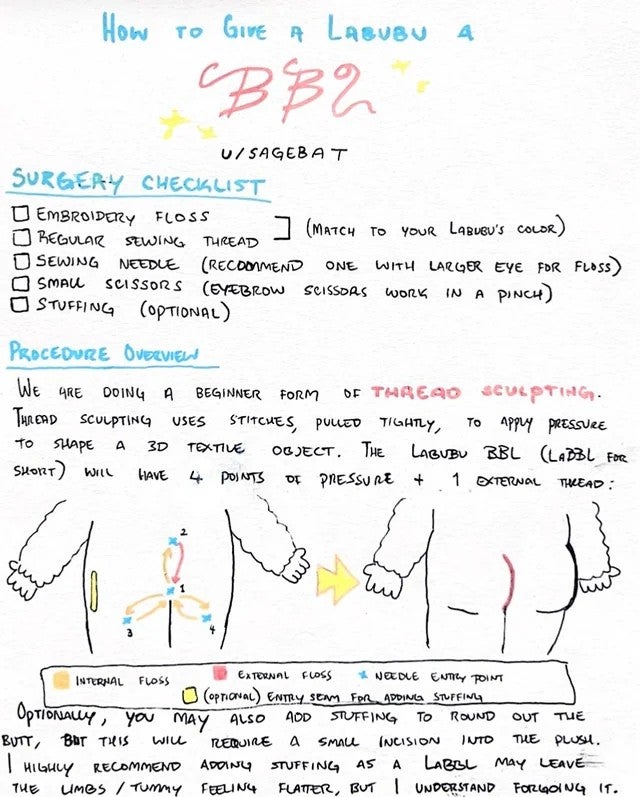 HOW TO GIVE A LABUBU A
BBL
U/SAGEBAT
SURGERY CHECKLIST
EMBROIDERY FLOSS
REGULAR SEWING THREAD
(MATCH TO YOUR LABUBU'S COLOR)
SEWING NEEDLE (RECOMMEND ONE WITH LARGER EYE FOR FLOSS)
SMALL SCISSORS (EYEBROW SCISSORS WORK IN A PINCH)
STUFFING (OPTIONAL)
PROCEDURE OVERVIEW
WE ARE DOING A BEGINNER FORM OF THREAD SCULPTING.
THREAD SCULPTING USES STITCHES, PULLED TIGHTLY, TO APPLY PRESSURE
TO SHAPE A 3D TEXTILE OBJECT. THE LABUBU BBL (LABBL FOR
SHORT) WILL HAVE 4 POINTS OF PRESSURE + 1 EXTERNAL THREAD:
2
1
3
4
INTERNAL FLOSS
EXTERNAL FLOSS
NEEDLE ENTRY POINT
(OPTIONAL) ENTRY SEAM FOR ADDING STUFFING
OPTIONALLY, YOU MAY ALSO ADD STUFFING TO ROUND OUT THE
BUTT, BUT THIS WILL REQUIRE A SMALL INCISION INTO THE PLUSH.
I HIGHLY RECOMMEND ADDING STUFFING AS A LABBL MAY LEAVE
THE LIMBS / TUMMY FEELING FLATTER, BUT I UNDERSTAND FORGOING IT.